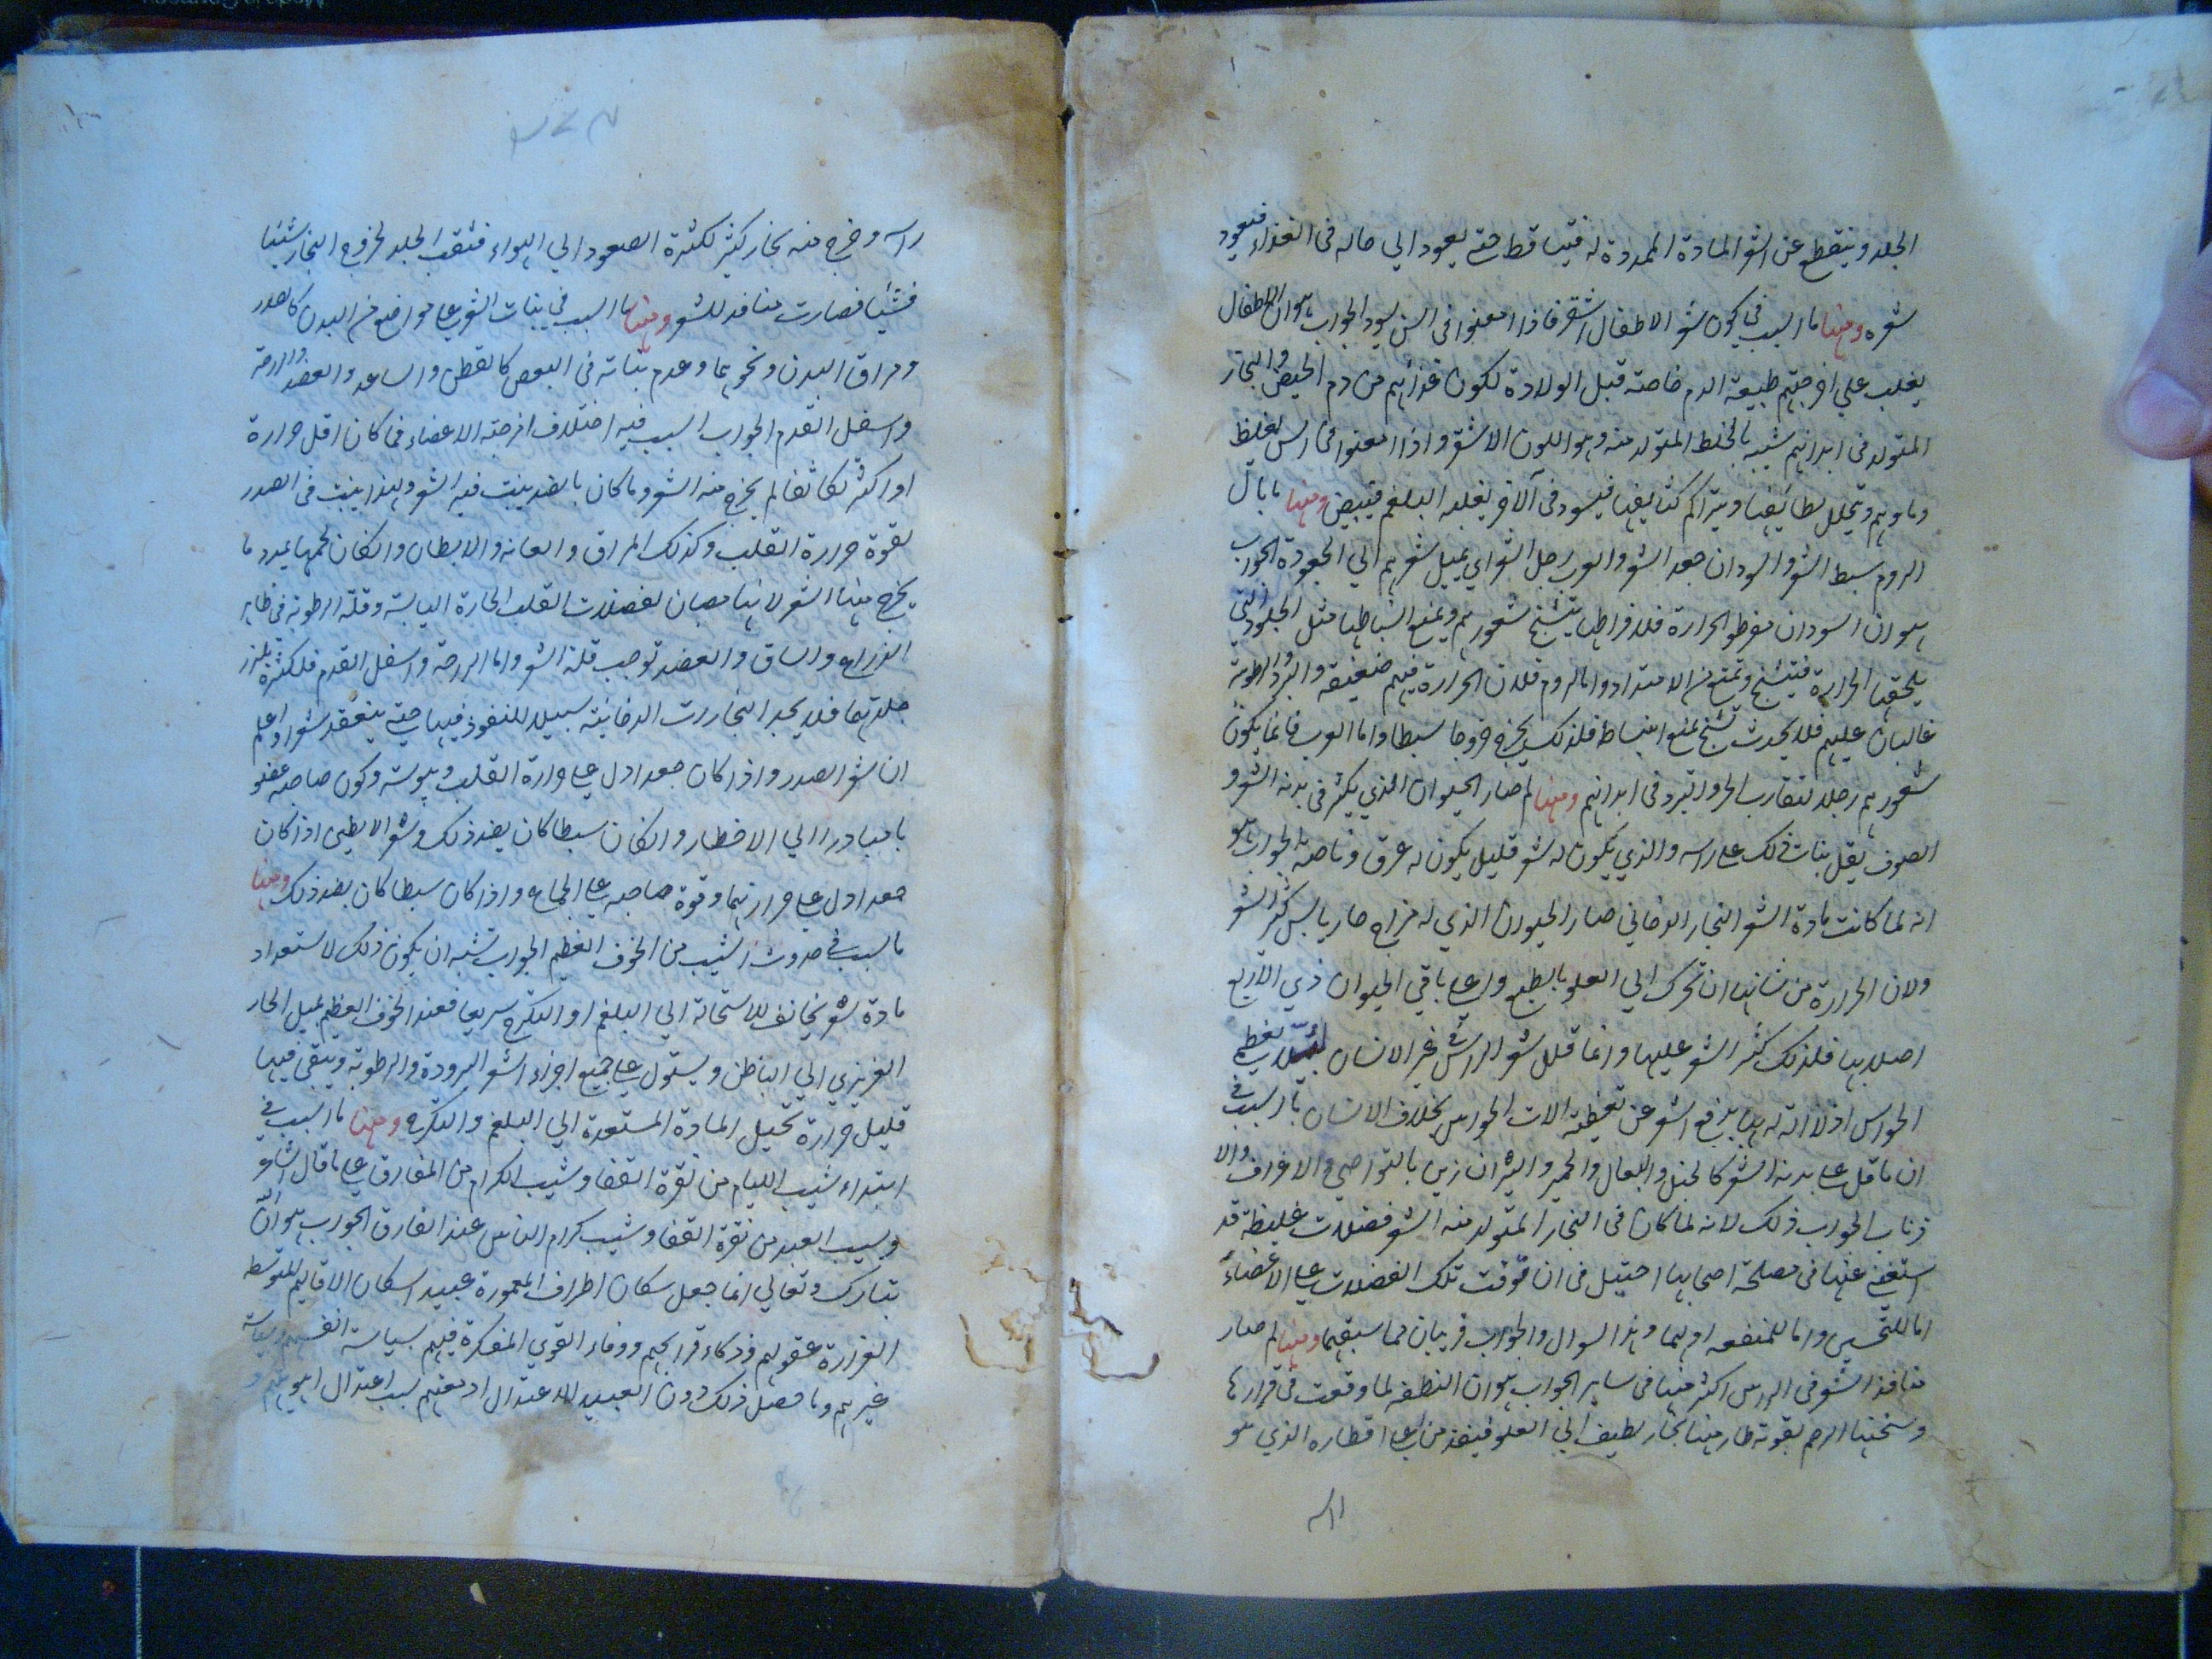 الجلد وينقطع عن الشعر المادة الممددة له فيتساقط حتى يعود الي حاله في الغذاء فيعود
شعره ومنها ما السبب في كون شعر الاطفال اشقر فاذا امعنوا في السن يسود الجواب هو ان الاطفال
يغلب علي امزجتهم طبيعة الدم خاصة قبل الولادة لكون غذائهم من دم الحيض والبخار
المتولد في ابدانهم شبيه بالخلط المتولد منه وهو اللون الاشقر واذا امعنوا في السن يغلظ
دماؤهم وتحلل لطائفها ويتراكم كثايفها فيسود في الآخر يغلبه البلغم فيبيض ومنها ما بال
الروم سبط الشعر والسودان جعد الشعر والعرب رجل الشعر اي يميل شعرهم الي الجعودة الجواب
هو ان السودان مفرطو الحرارة فلافراطها يتشنج شعورهم ويمنع انبساطها مثل الجلود التي
يلحقها الحرارة فيتشنج وتمتنع من الامتداد واما الروم فلان الحرارة فيهم ضعيفة والبرد والرطوبة
غالبان عليهم فلا يحدث تشنج يمنع انبساط فلذلك يخرج خروجا سبطا واما العرب فانما يكون
شعورهم رجلا لتقارب الحر والبرد في ابدانهم ومنها لم صار الحيوان الذي يكثر في بدنه الشعر و
الصوف يقل بنات ذلك على راسه والذي يكون له شعر قليل يكون له عرف وناصية الجواب هو
انه لما كانت مادة الشعر البخار الدخاني صار الحيوان الذي له مزاج حار يابس كثر الشعر
ولان الحرارة من شانها ان تحرك الي العلو بالطبع واعلي باقي الحيوان ذي الاربع
اصلابها فلذلك كثر الشعر عليها وانما قلل شعر الراس في غير الانسان لئلا يغطي
الحواس اذ لا الة لها يرفع الشعر عن تغطية الات الحواس بخلاف الانسان ما السبب في
ان ما قل على بدنه الشعر كالخيل والبغال والحمير والثيران زين بالنواصي والاعراف والا
ذناب الجواب ذلك لانه لما كان في البخار المتولد منه الشعر فضلات غليظة قد
استغني عنها في مصلحة اصحابها احتيل في ان فرقت تلك الفضلات على الاعضاء
اما للتحسين واما للمنفعه او لهما وهذا السوال والجواب قريبان مما سبقهما ومنها لم صار
منافذ الشعر في الراس اكثر منها في ساير الجواب هو ان النطفة لما وقعت في قرارها
وسخنها الرحم بقوته طار منها بخار لطيف الي العلو فينفذ من اعلي اقطاره الذي هو
راسه
راسه وخرج منه بخار كثير لكثرة الصعود الي الهواء فثقب الجلد لخروج البخار شيئا
فشيئا فصارت منافذ للشعر ومنها ما السبب في نبات الشعر على مواضع من البدن كالصدر
ومراق البدن ونحوهما وعدم نباته في البعض كالقطن والساعد والعضد والراحة
واسفل القدم الجواب السبب فيه اختلاف امزجة الاعضاء فما كان اقل حرارة
او اكثر تكاثفا لم يخرج منه الشعر وما كان بالضد ينبت فيه الشعر ولهذا ينبت في الصدر
لقوة حرارة القلب وكذلك المراق والعانة والابطان وان كان لحمها يمدد ما
يخرج منها الشعر لانها مصبان لفضلات القلب الحارة اليابسة وقلة الرطوبة في ظاهر
الذراع والساق والعضد توجب قلة الشعر واما الراحة واسفل القدم فلكثرة تلزز
جلدتهما فلا يجد البخارات الدخانية سبيلا للنفوذ فيها حتى ينعقد شعرا واعلم
ان شعر الصدر واذا كان جعدا دل على حرارة القلب ويبوسته وكون صاحبه
مبادرا الي الاخطار وان كان سبطا كان بضد ذلك وشعر الابطين اذا كان
جعدا دل على حرارتهما وقوة صاحبه على الجماع واذا كان سبطا كان بضد ذلك ومنها
ما سبب في حدوث الشيب من الخوف العظيم الجواب يشبه ان يكون ذلك لاستعداد
مادة شعر للاستحالة الي البلغم او التكرج سريعا فعند الخوف العظيم يميل الحار
الغريزي الي الباطن ويستولي على جميع اجزاء الشعر البرودة والرطوبة ويبقى فيها
قليل حرارة تحيل المادة المستعدة الي البلغم والتكرج ومنها ما السبب في
ابتداء شيب الليام من نقرة القفا وشيب الكرام من المفارق على ما قال الشاعر
وشيب العبد من نقرة القفا وشيب كرام الناس عند المفارق الجواب هو ان الله
تبارك وتعالي انما جعل سكان اطراف المعمورة عبيد السكان الاقاليم المتوسطة
لغزارة عقولهم وذكاء قرايحهم ووفاء القوي المفكرة فيهم سياسة انفسهم وسياسة
غيرهم وما حصل ذلك دون العبيد الا لاعتدال ادمغتهم بسبب اعتدال اهويتهم و